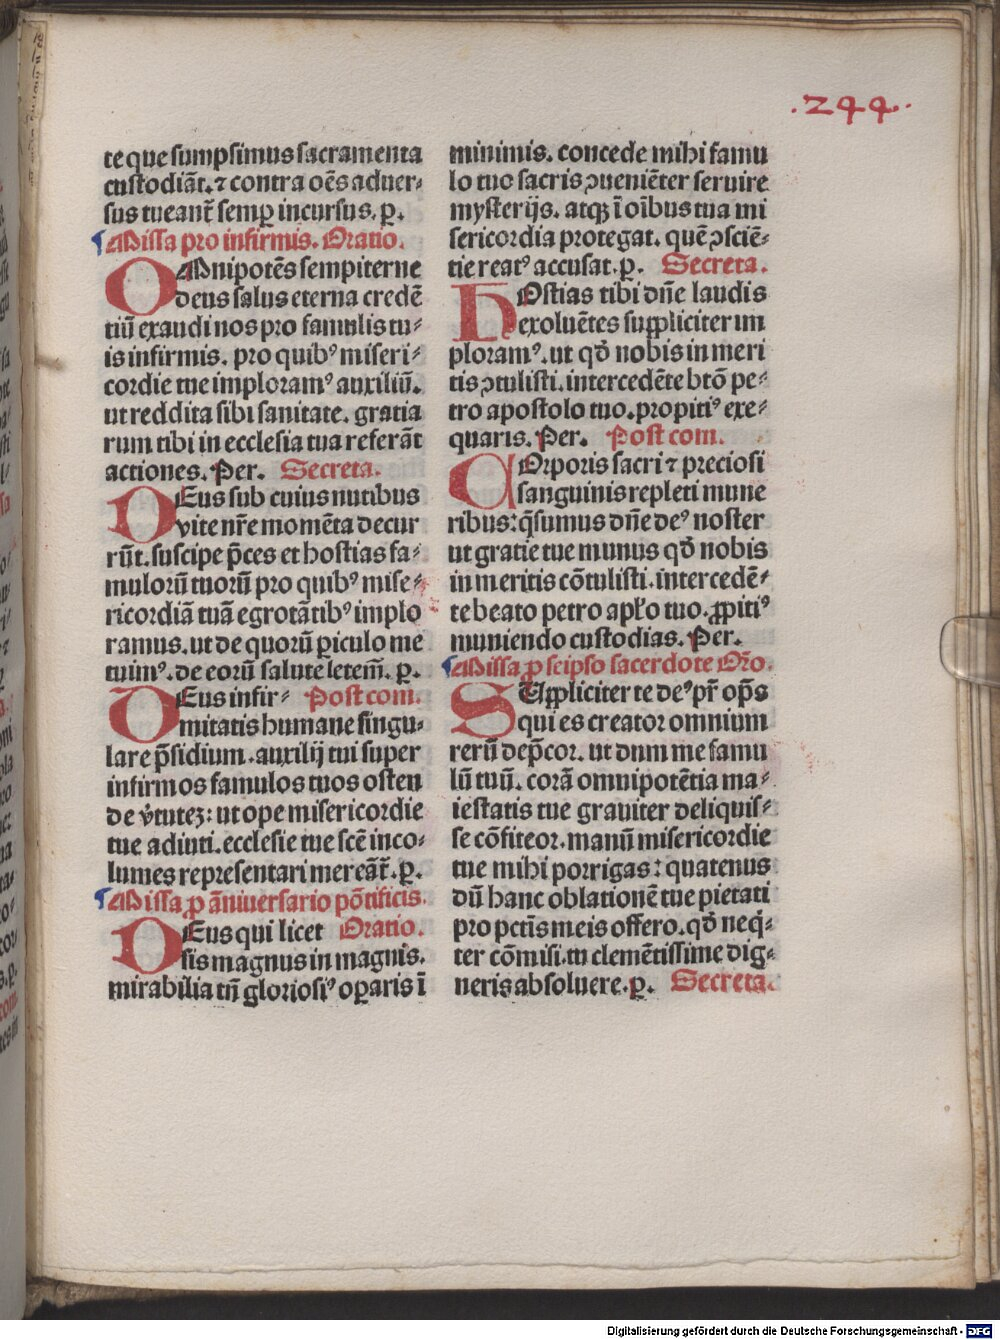 .244.
te que sumpsimus sacramenta
custodiãt. ⁊ contra oẽs aduer⸗
sus tueant᷑ semꝑ incursus. ꝑ.
Missa pro infirmis. Oratio.
OMnipotẽs sempiterne
deus salus eterna credẽ
tiũ exaudi nos pro famulis tu⸗
is infirmis. pro quibꝰ miseri⸗
cordie tue imploramꝰ auxiliũ.
ut reddita sibi sanitate. gratia
rum tibi in ecclesia tua referãt
actiones. Per. Secreta.
DEus sub cuius nutibus
vite nr̃e momẽta decur
rũt. suscipe p̃ces et hostias fa⸗
mulorũ tuorũ pro quibꝰ mise⸗
ricordiã tuã egrotãtibꝰ implo
ramus. ut de quorũ ꝑiculo me
tuimꝰ. de eorũ salute letem̃. ꝑ.
DEus infir⸗ Post com.
mitatis humane singu⸗
lare p̃sidium. auxilij tui super
infirmos famulos tuos osten
de v̾tutez: ut ope misericordie
tue adiuti. ecclesie tue scẽ inco⸗
lumes representari mereãt᷑. ꝑ.
Missa ꝓ ãniuersario põtificis.
DEus qui licet Oratio.
sis magnus in magnis.
mirabilia tñ gloriosiꝰ oꝑaris ĩ
minimis. concede mihi famu
lo tuo sacris ꝯueniẽter seruire
mysterijs. atqꝫ ĩ oĩbus tua mi
sericordia protegat. quẽ ꝯsciẽ⸗
tie reatꝰ accusat. ꝑ. Secreta.
HOstias tibi dñe laudis
exoluẽtes suppliciter im
ploramꝰ. ut qđ nobis in meri
tis ꝯtulisti. intercedẽte btõ pe⸗
tro apostolo tuo. propitiꝰ exe⸗
quaris. Per. Post com.
COrporis sacri ⁊ preciosi
sanguinis repleti mune
ribus: q̃sumus dñe deꝰ noster
ut gratie tue munus qđ nobis
in meritis cõtulisti. intercedẽ⸗
te beato petro apł̃o tuo. ꝓpitiꝰ
muniendo custodias. Per.
Missa ꝓ seipso sacerdote Or̃o.
SUppliciter te deꝰ pr̃ op̃s
qui es creator omnium
rerũ dep̃cor. ut dum me famu
lũ tuũ. corã omnipotẽtia ma⸗
iestatis tue grauiter deliquis⸗
se cõfiteor. manũ misericordie
tue mihi porrigas: quatenus
dũ hanc oblationẽ tue pietati
pro pctĩs meis offero. qđ neq̃⸗
ter cõmisi. tu clemẽtissime dig⸗
neris absoluere. ꝑ. Secreta.
Digitalisierung gefördert durch die Deutsche Forschungsgemeinschaft - DFG